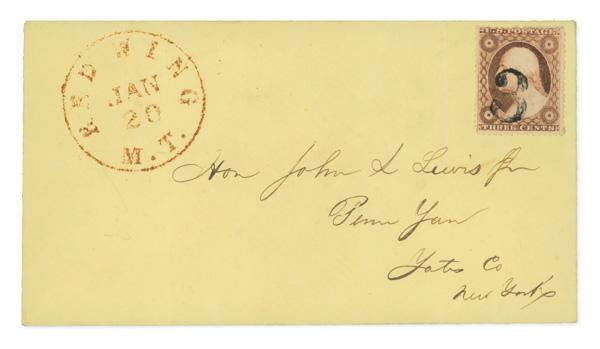 RED WING
JAN
20
M.T.
U.S. POSTAGE
3
THREE CENTS
Hon John L Lewis Jr
Penn Yan
Yates Co
New York